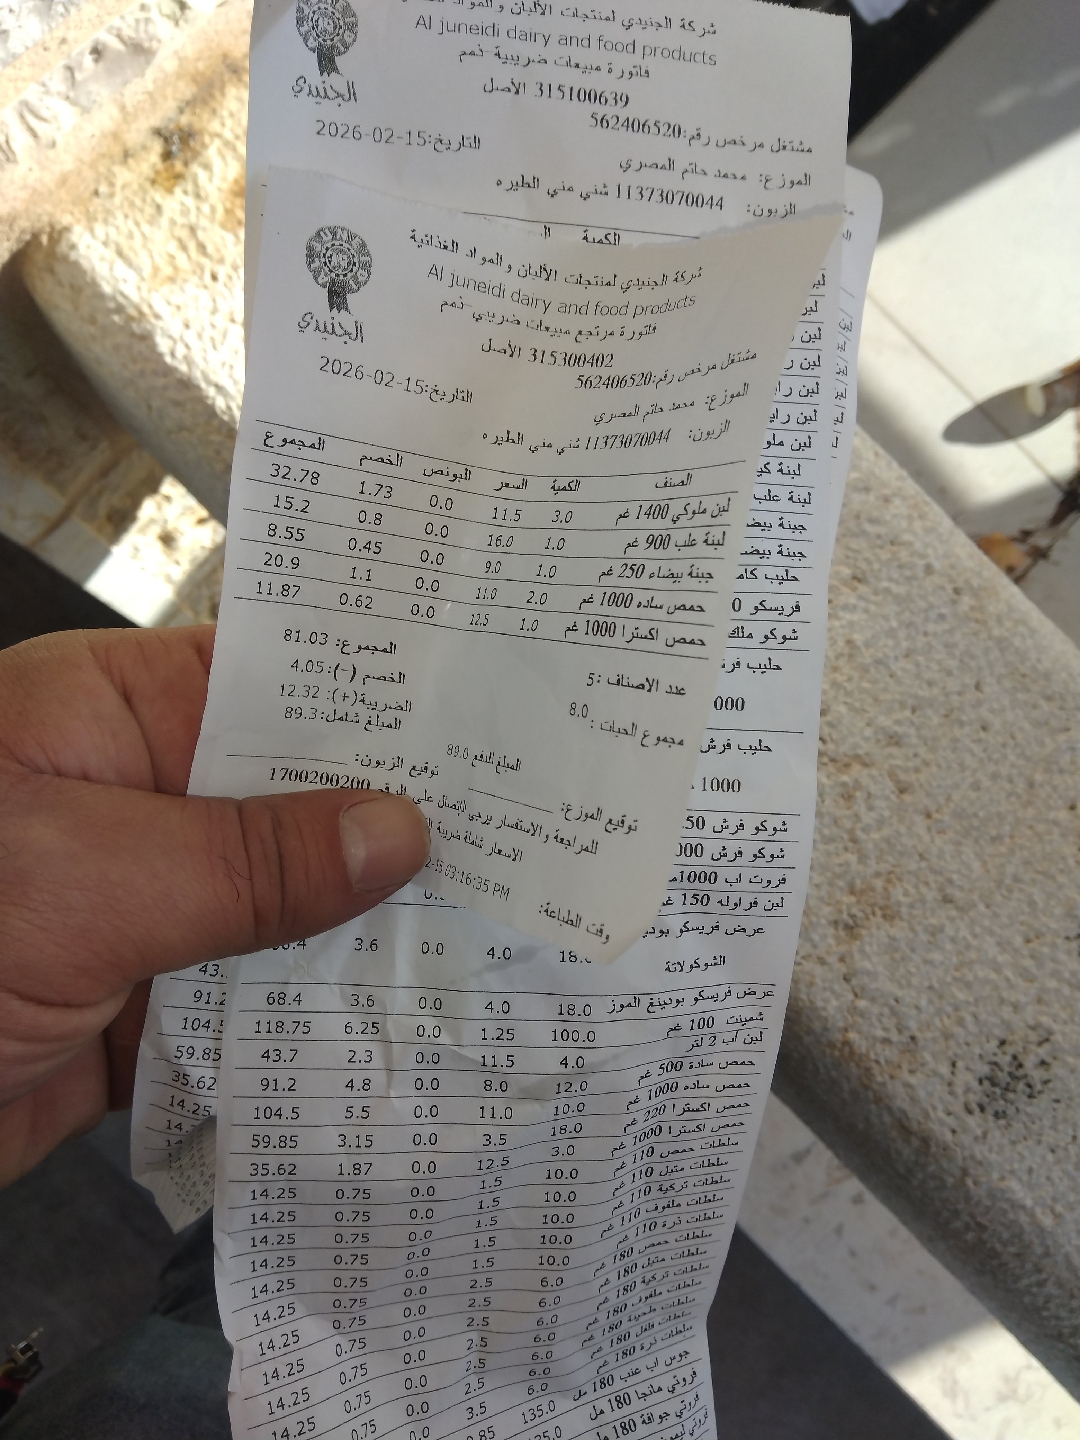 شركة الجنيدي لمنتجات الألبان والمواد
Al juneidi dairy and food products
فاتورة مبيعات ضريبية -ذمم
315100639 الأصل
مشتغل مرخص رقم:562406520
التاريخ:2026-02-15
الموزع: محمد حاتم المصري
الزبون: 11373070044 شني مني الطيره
الكمية
الجنيدي
شركة الجنيدي لمنتجات الألبان والمواد الغذائية
Al juneidi dairy and food products
فاتورة مرتجع مبيعات ضريبي -ذمم
الجنيدي
315300402 الأصل
مشتغل مرخص رقم:562406520
التاريخ:2026-02-15
الموزع: محمد حاتم المصري
الزبون: 11373070044 شني مني الطيره
الصنف الكمية السعر البونص الخصم المجموع
لبن ملوكي 1400 غم 3.0 11.5 0.0 1.73 32.78
لبنة علب 900 غم 1.0 16.0 0.0 0.8 15.2
جبنة بيضاء 250 غم 1.0 9.0 0.0 0.45 8.55
حمص ساده 1000 غم 2.0 11.0 0.0 1.1 20.9
حمص اكسترا 1000 غم 1.0 12.5 0.0 0.62 11.87
المجموع: 81.03
الخصم (-): 4.05
الضريبة(+): 12.32
المبلغ شامل: 89.3
عدد الاصناف: 5
مجموع الحبات: 8.0
المبلغ المدفع 89.0
توقيع الزبون:
توقيع الموزع:
للمراجعة والاستفسار يرجى الاتصال على الرقم 1700200200
الاسعار شاملة ضريبة
وقت الطباعة: 03:16:35 PM
لبن
لبن
لبن
لبن
لبن راي
لبن راي
لبن ملو
لبنة كي
لبنة علب
جبنة بيض
جبنة بيض
حليب كام
فريسكو
شوكو ملك
حليب فر
000
حليب فرش
1000
شوكو فرش
شوكو فرش
فروت اب 1000م
لبن فراوله 150 غ
عرض فريسكو بودي
الشوكولاتة 18. 4.0 0.0 3.6
عرض فريسكو بودينغ الموز 18.0 4.0 0.0 3.6 68.4
شمينت 100 غم 100.0 1.25 0.0 6.25 118.75
لبن اب 2 لتر 4.0 11.5 0.0 2.3 43.7
حمص سادة 500 غم 12.0 8.0 0.0 4.8 91.2
حمص ساده 1000 غم 10.0 11.0 0.0 5.5 104.5
حمص اكسترا 220 غم 18.0 3.5 0.0 3.15 59.85
حمص اكسترا 1000 غم 3.0 12.5 0.0 1.87 35.62
سلطات حمص 110 غم 10.0 1.5 0.0 0.75 14.25
سلطات متبل 110 غم 10.0 1.5 0.0 0.75 14.25
سلطات تركية 110 غم 10.0 1.5 0.0 0.75 14.25
سلطات ملفوف 110 غم 10.0 1.5 0.0 0.75 14.25
سلطات ذرة 110 غم 10.0 1.5 0.0 0.75 14.25
سلطات حمص 180 غم 6.0 2.5 0.0 0.75 14.25
سلطات متبل 180 غم 6.0 2.5 0.0 0.75 14.25
سلطات تركية 180 غم 6.0 2.5 0.0 0.75 14.25
سلطات ملفوف 180 غم 6.0 2.5 0.0 0.75 14.25
سلطات طحينة 180 غم 6.0 2.5 0.0 0.75 14.25
سلطات فلفل 180 غم
سلطات ذرة 180 غم
جوس اب عنب 180 مل 135.0 3.5
فروتي مانجا 180 مل
فروتي جوافة 180 مل
91.2
104.
59.85
35.62
14.25